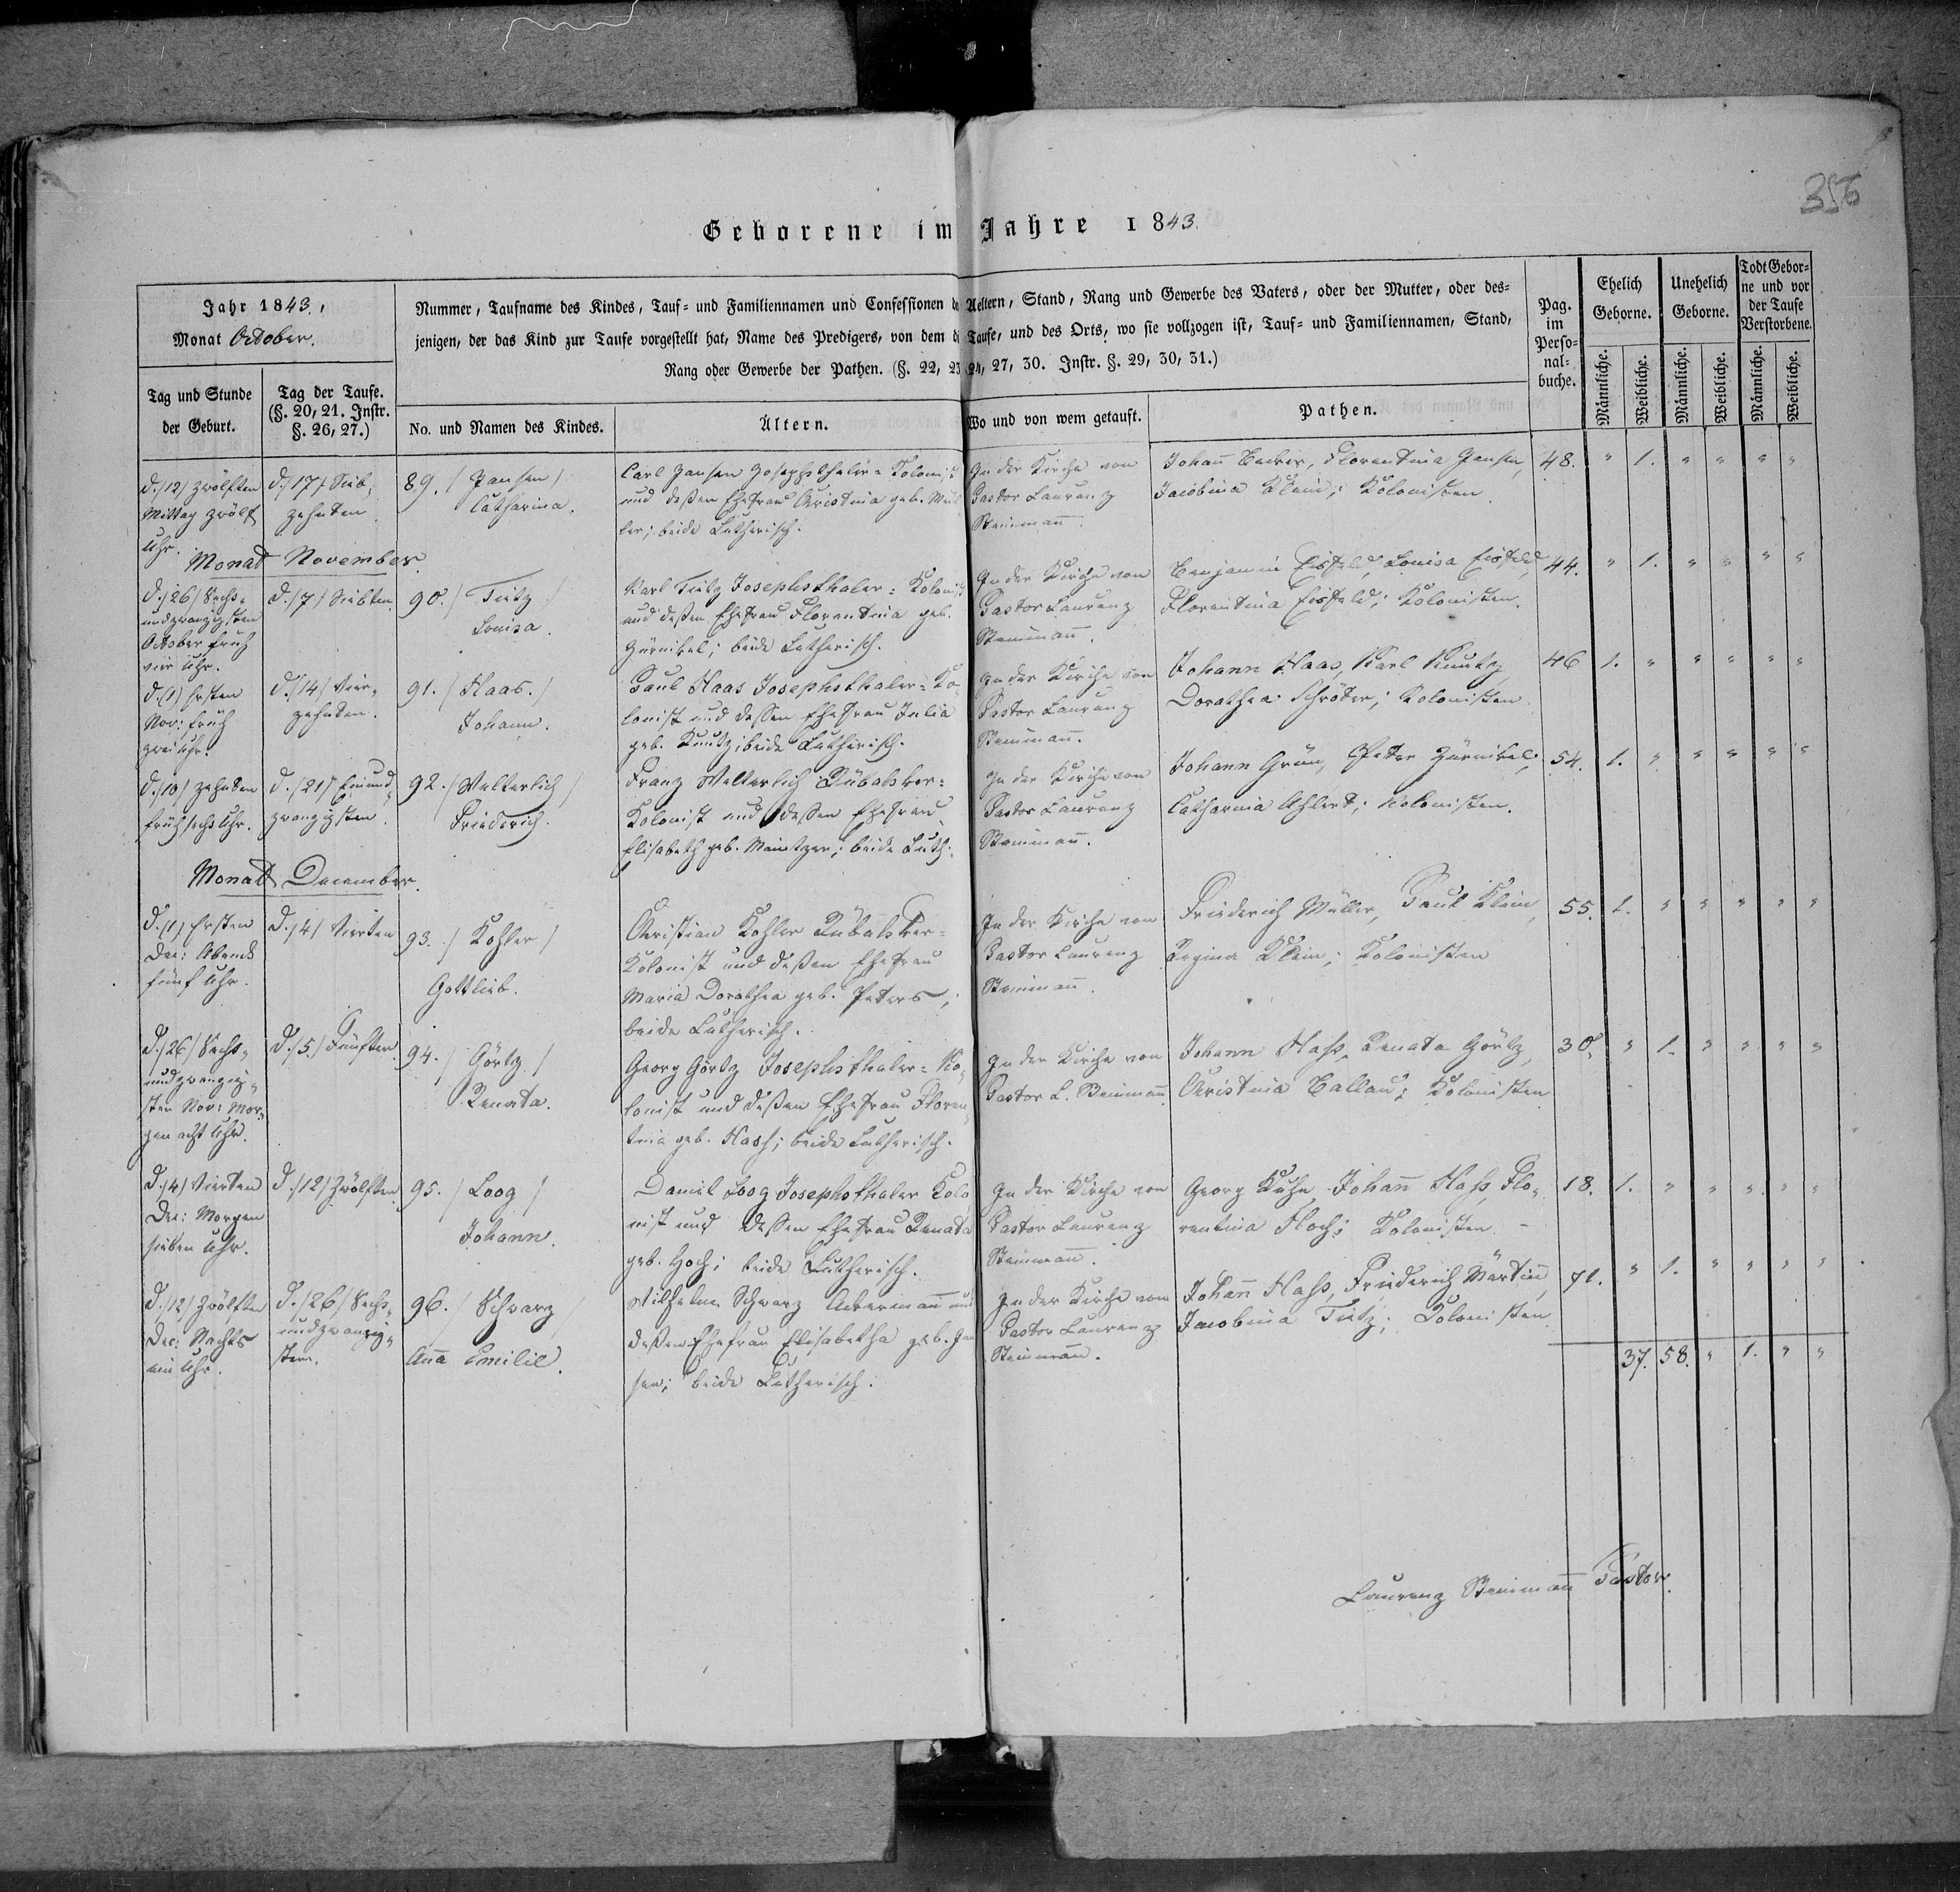 356
Geborene im Jahre 1843.
Jahr 1843.,
Monat October.
Nummer, Taufname des Kindes, Tauf- und Familiennamen und Confessionen de Aeltern, Stand, Rang und Gewerbe des Vaters, oder der Mutter, oder des-
jenigen, der das Kind zur Taufe vorgestellt hat, Name des Predigers, von dem d Taufe, und des Orts, wo sie vollzogen ist, Tauf- und Familiennamen, Stand,
Rang oder Gewerbe der Pathen. (§. 22, 23 24, 27, 30. Instr. §. 29, 30, 31.)
Pag.
im
Perso-
nal-
buche.
Ehelich
Geborne.
Unehelich
Geborne.
Todt Gebor-
ne und vor
der Taufe
Verstorbene.
Tag und Stunde
der Geburt.
Tag der Taufe.
(§. 20, 21. Instr.
§. 26, 27.)
No. und Namen des Kindes.
Ältern.
Wo und von wem getauft.
Pathen.
Männliche.
Weibliche.
Männliche.
Weibliche.
Männliche.
Weibliche.
d. /12/ zwölften
Mittag zwölf
Uhr.
d. /17/ Sieb-
zehnten
89. / Jansen /
Catharina.
Carl Jansen Josephsthaler-Kolonist
und deßen Ehefrau Christina geb. Mül
ler; beide Lutherisch.
In der Kirche von
Pastor Laurenz
Steinmann.
Johann Becker, Florentina Jansen,
Jacobina Klein; Kolonisten.
48. " 1. " " " "
Monat November.
d. /26/ Sechs-
undzwanzigsten
October früh
vier Uhr.
d. /7/ Siebten
90. / Tietz /
Louisa.
Karl Tietz Josephsthaler-Kolonist
und deßen Ehefrau Florentina geb.
Zürnikel; beide Lutherisch.
In der Kirche von
Pastor Laurenz
Steinmann.
Benjamin Eisfeld, Louisa Eisfeld,
Florentina Eisfeld; Kolonisten.
44. " 1. " " " "
d. (1) Ersten
Nov: früh
zwei Uhr.
d. /14/ Vier-
zehnten.
91. / Haas. /
Johann.
Paul Haas Josephsthaler-Ko-
lonist und dessen Ehefrau Julia
geb. Kuntz; beide Lutherisch.
In der Kirche von
Pastor Laurenz
Steinmann.
Johann Haas, Karl Kuntz,
Dorothea Schröter; Kolonisten
46 1. " " " " "
d. /10/ zehnten
früh sechs Uhr.
d. /21/ Einund-
zwanzigsten.
92. / Welterlich /
Friederich.
Franz Welterlich Rübalsker-
Kolonist und dessen Ehefrau
Elisabeth geb. Maintzer; beide Luth:
In der Kirche von
Pastor Laurenz
Steinmann.
Johann Grün, Peter Zürnikel,
Catharina Ahlert; Kolonisten.
54. 1. " " " " "
Monat December.
d. (1) Ersten
Dec: Abends
fünf Uhr.
d. /4/ Vierten
93. / Kohler /
Gottlieb.
Christian Kohler Rübalsker-
Kolonist und deßen Ehefrau
Maria Dorothea geb. Peters;
beide Lutherisch.
In der Kirche von
Pastor Laurenz
Steinmann.
Friederich Müller, Paul Klein,
Regina Klein; Kolonisten
55. 1. " " " " "
d. /26/ Sechs-
undzwanzig-
sten Nov: Mor-
gen acht Uhr.
d. /5./ Fünften.
94. / Görtz /
Renata.
Georg Görtz Josephsthaler-Ko-
lonist und deßen Ehefrau Floren-
tina geb. Hass; beide Lutherisch.
In der Kirche von
Pastor L. Steinmann
Johann Hass, Renata Görtz,
Christina Ballau; Kolonisten
30. " 1. " " " "
d. /4/ Vierten
Dec: Morgen
sieben Uhr.
d. /12/ Zwölften
95. / Loog /
Johann.
Daniel Loog Josephsthaler Kolo
nist und dessen Ehefrau Renata
geb. Hoch; beide Lutherisch.
In der Kirche von
Pastor Laurenz
Steinmann.
Georg Kuhn, Johann Hass, Flo-
rentina Hoch; Kolonisten.
18. 1. " " " " "
d. /12/ Zwölften
Dec: Nachts
ein Uhr.
d. /26/ Sechs-
undzwanzig-
sten.
96. / Schwarz /
Anna Emilie.
Wilhelm Schwarz Ackermann und
deßen Ehefrau Elisabetha geb. Jan
sen; beide Lutherisch.
In der Kirche von
Pastor Laurenz
Steinmann.
Johann Hass, Friederich Martin,
Jacobina Tietz; Kolonisten.
71. " 1. " " " "
37. 58. " 1. " "
Laurenz Steinmann Pastor.